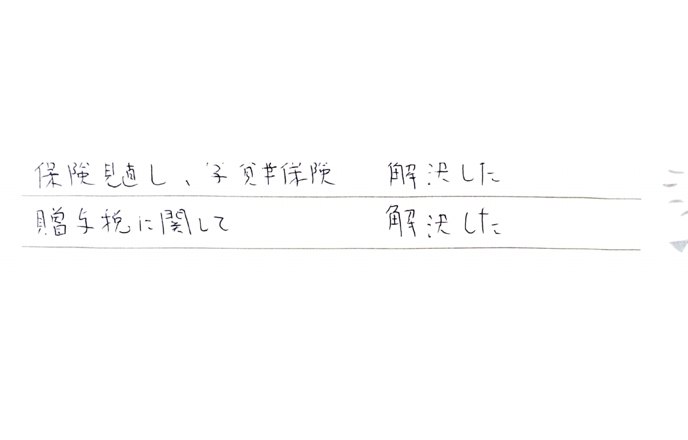 保険見直し、学資保険 解決した
贈与税に関して 解決した